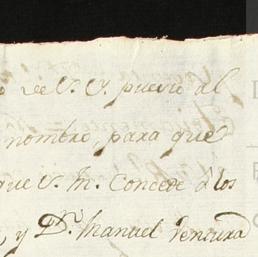 de V. S. puesto al
nombre, para que
que V. M. Concede á los
, y Dn. Manuel Ventura